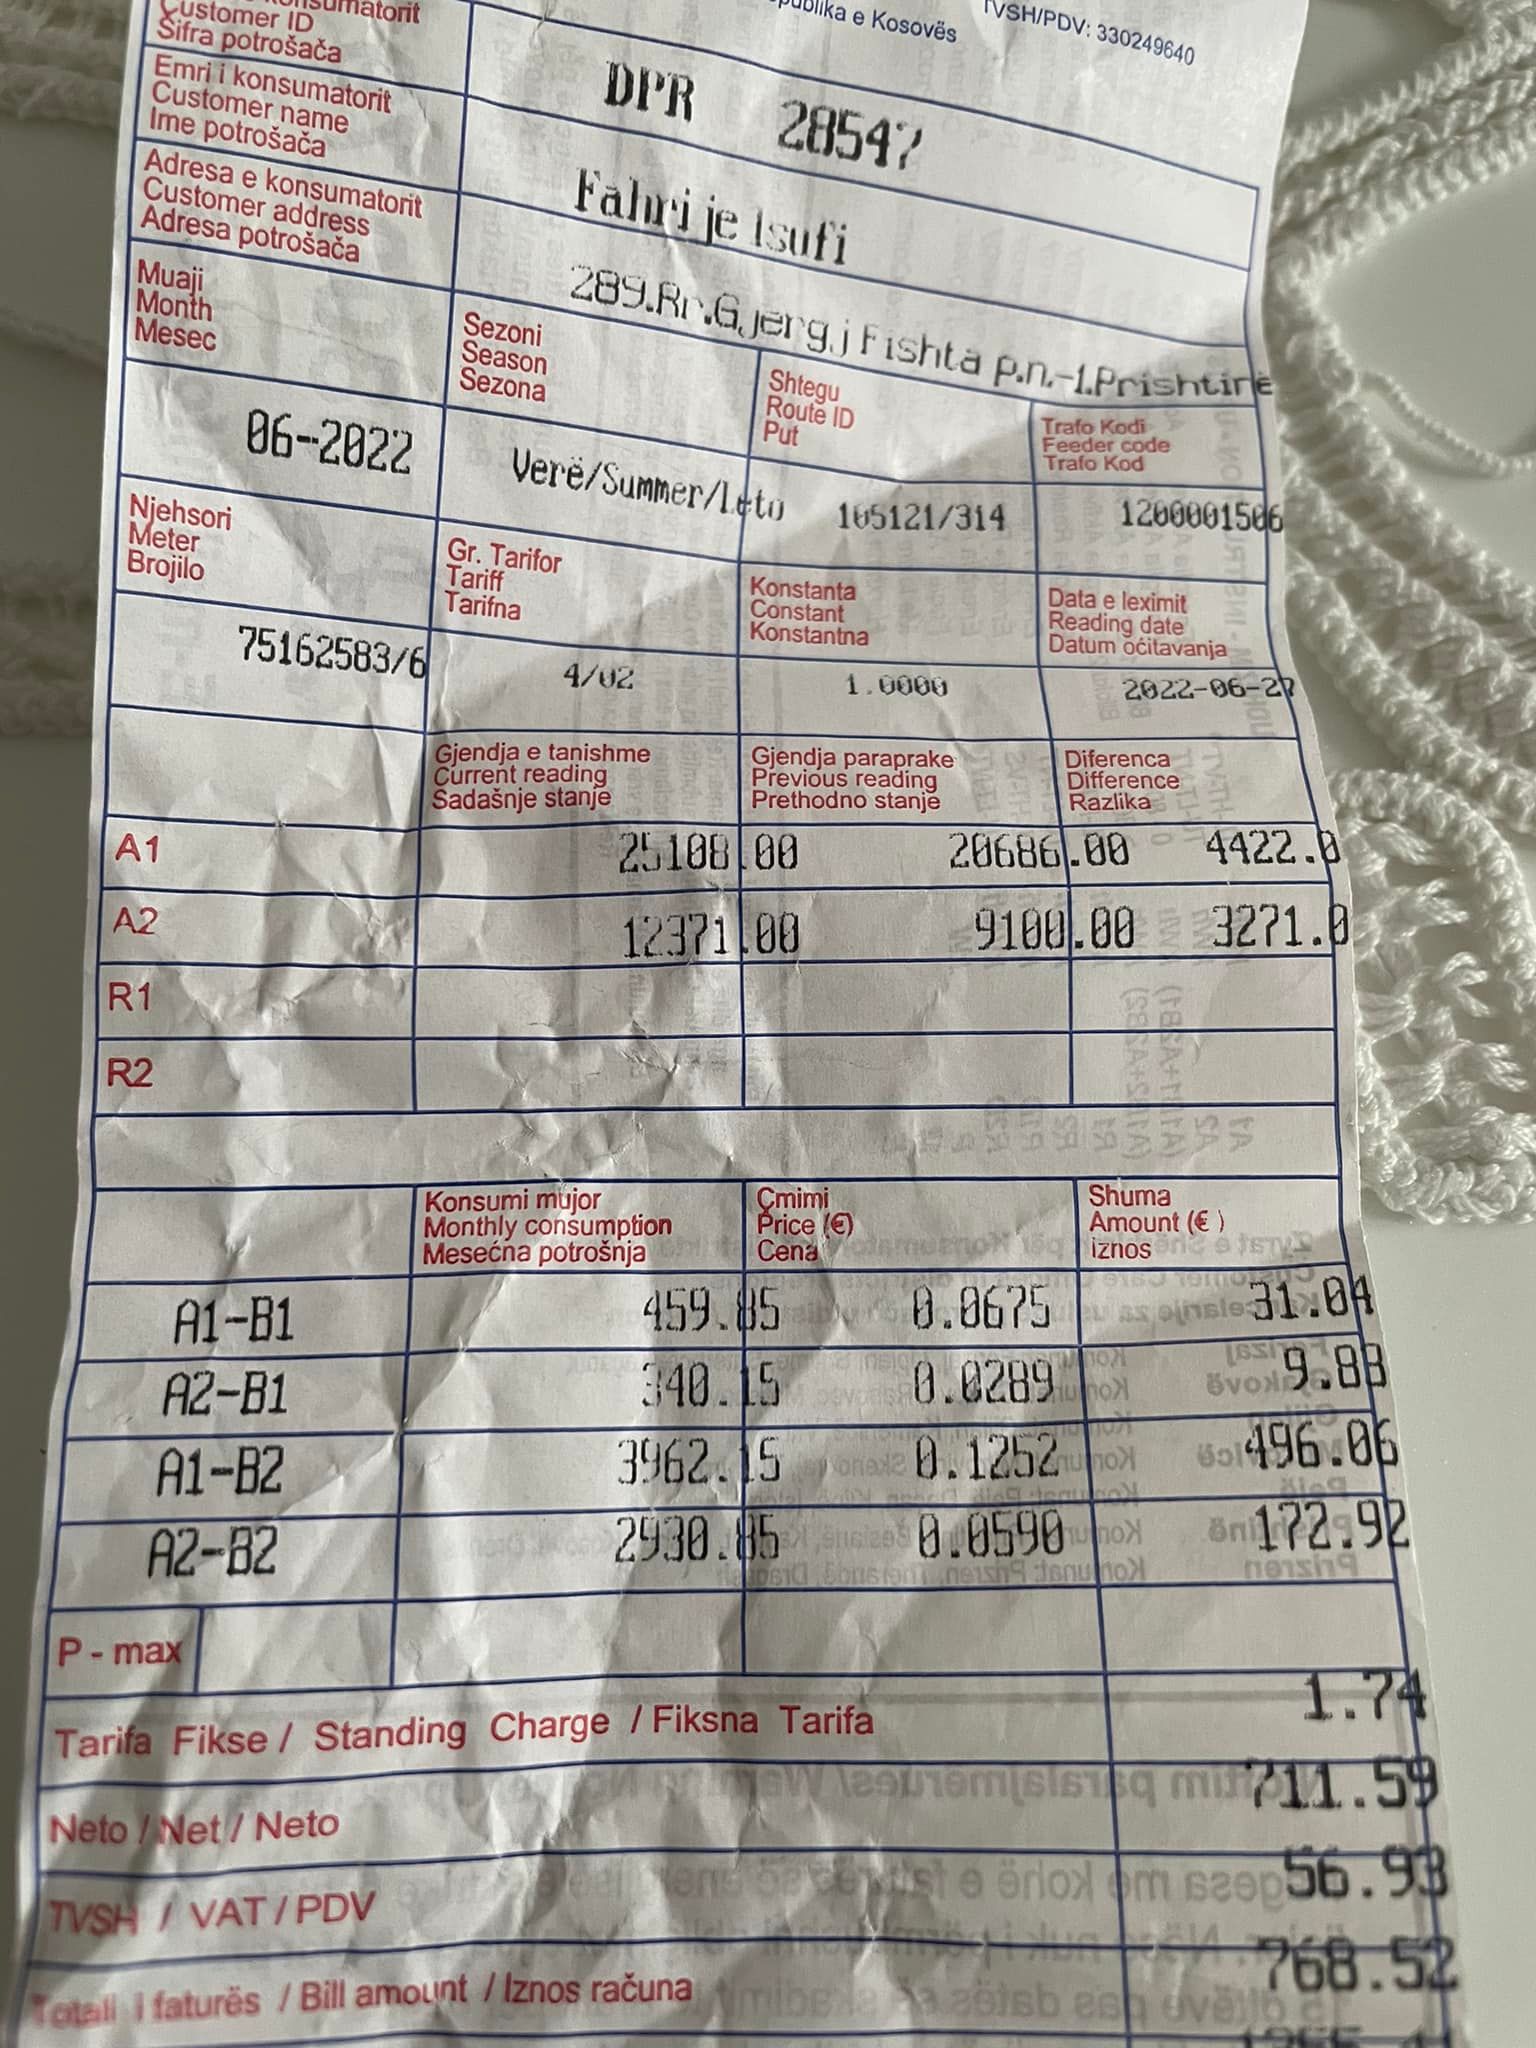 Republika e Kosovës
TVSH/PDV: 330249640
Customer ID
Šifra potrošača
DPR 28547
Emri i konsumatorit
Customer name
Ime potrošača
Fahrije Isufi
Adresa e konsumatorit
Customer address
Adresa potrošača
289.Rr.Gjergj Fishta p.n.-1.Prishtinë
Muaji
Month
Mesec
Sezoni
Season
Sezona
Shtegu
Route ID
Put
Trafo Kodi
Feeder code
Trafo Kod
06-2022
Verë/Summer/Leto
105121/314
1200001506
Njehsori
Meter
Brojilo
Gr. Tarifor
Tariff
Tarifna
Konstanta
Constant
Konstantna
Data e leximit
Reading date
Datum oćitavanja
75162583/6
4/02
1.0000
2022-06-27
Gjendja e tanishme
Current reading
Sadašnje stanje
Gjendja paraprake
Previous reading
Prethodno stanje
Diferenca
Difference
Razlika
A1 25108.00 20686.00 4422.0
A2 12371.00 9100.00 3271.0
R1
R2
Konsumi mujor
Monthly consumption
Mesećna potrošnja
Çmimi
Price (€)
Cena
Shuma
Amount (€ )
iznos
A1-B1 459.85 0.0675 31.04
A2-B1 340.15 0.0289 9.83
A1-B2 3962.15 0.1252 496.06
A2-B2 2930.85 0.0590 172.92
P - max
Tarifa Fikse / Standing Charge / Fiksna Tarifa 1.74
Neto / Net / Neto 711.59
TVSH / VAT / PDV 56.93
Totali i faturës / Bill amount / Iznos računa 768.52